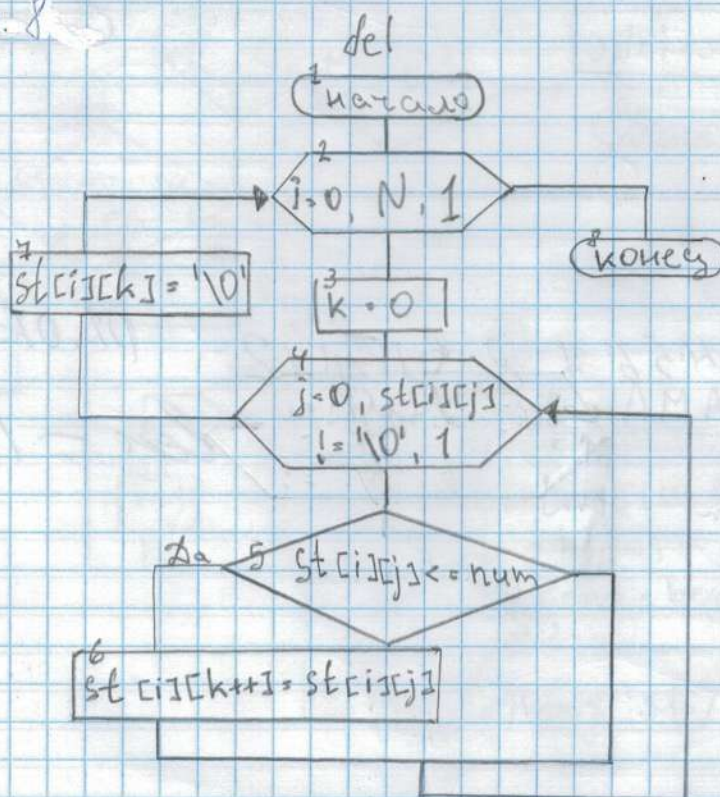 . 8
del
1
начало
2
i=0, N, 1
8
конец
7
st[i][k] = '\0'
3
k = 0
4
j=0, st[i][j]
!= '\0', 1
Да 5 st[i][j] <= num
6
st [i][k++] = st[i][j]